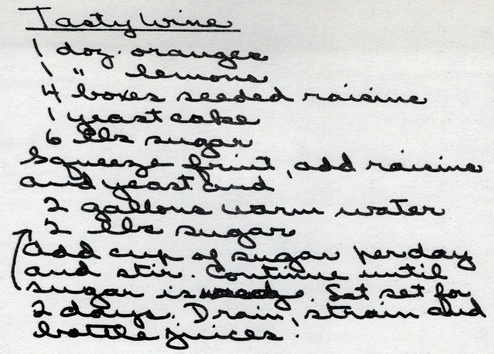 Tasty Wine
1 doz. oranges
1 " lemons
4 boxes seeded raisins
1 yeast cake
6 lbs sugar
Squeeze fruit, add raisins
and yeast and
2 gallons warm water
2 lbs sugar
Add cup of sugar per day
and stir. Continue until
sugar is . Let set for
2 days. Drain, strain and
bottle juices.